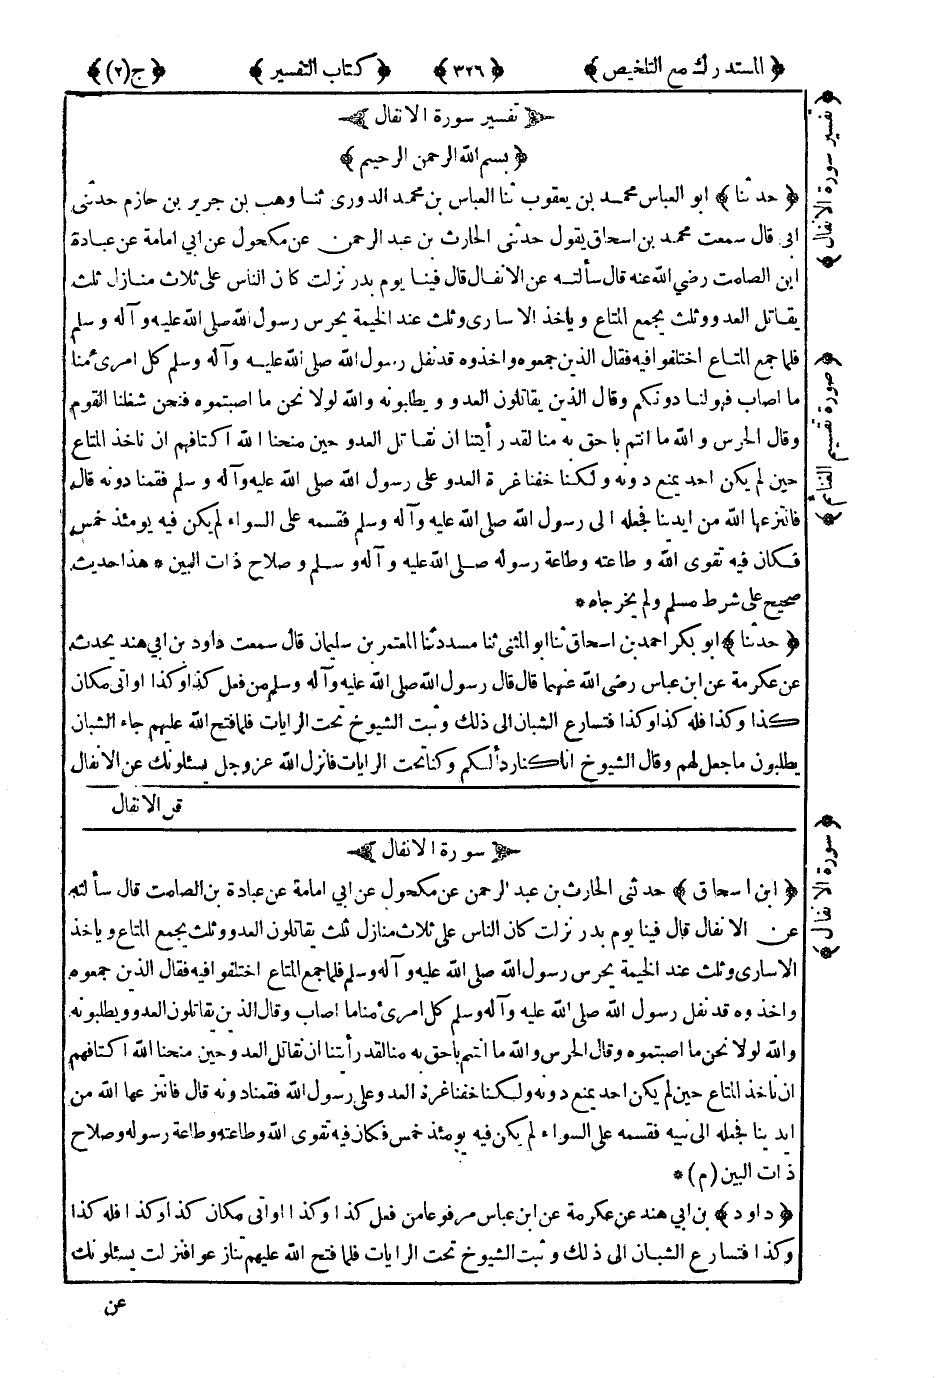 ﴿ المستدرك مع التلخيص ﴾ ﴿ ٣٢٦ ﴾ ﴿ كتاب التفسير ﴾ ﴿ ج(٢) ﴾
تفسير سورة الانفال
﴿ بسم الله الرحمن الرحيم ﴾
﴿ حدثنا ﴾ ابو العباس محمد بن يعقوب ثنا العباس بن محمد الدورى ثنا وهب بن جرير بن حازم حدثنى
ابى قال سمعت محمد بن اسحاق يقول حدثنى الحارث بن عبد الرحمن عن مكحول عن ابي امامة عن عبادة
ابن الصامت رضي الله عنه قال سألته عن الانفال قال فينا يوم بدر نزلت كان الناس على ثلاث منازل ثلث
يقاتل العدو وثلث يجمع المتاع و ياخذ الاسارى وثلث عند الخيمة يحرس رسول الله صلى الله عليه و آله و سلم
فلما جمع المتاع اختلفوا فيه فقال الذين جمعوه واخذوه قد نفل رسول الله صلى الله عليه وآله وسلم كل امرئ منا
ما اصاب فهو لنا دونكم وقال الذين يقاتلون العدو و يطلبونه والله لولا نحن ما اصبتموه فنحن شغلنا القوم
وقال الحرس و الله ما انتم باحق به منا لقد رأيتنا ان نقاتل العدو حين منحنا الله اكتافهم ان ناخذ المتاع
حين لم يكن احد يمنع دونه ولكنا خفنا غرة العدو على رسول الله صلى الله عليه وآله و سلم فقمنا دونه قال
فانتزعها الله من ايدينا فجعله الى رسول الله صلى الله عليه وآله وسلم فقسمه على السواء لم يكن فيه يومئذ خمس
فكان فيه تقوى الله و طاعته وطاعة رسوله صلى الله عليه و آله و سلم و صلاح ذات البين * هذا حديث
صحيح على شرط مسلم ولم يخرجاه *
﴿ حدثنا ﴾ ابو بكر احمد بن اسحاق ثنا ابو المثنى ثنا مسدد ثنا المعتمر بن سليمان قال سمعت داود بن ابي هند يحدث
عن عكرمة عن ابن عباس رضي الله عنهما قال قال رسول الله صلى الله عليه وآله وسلم من فعل كذا وكذا او اتى مكان
كذا وكذا فله كذا وكذا فتسارع الشبان الى ذلك وثبت الشيوخ تحت الرايات فلما فتح الله عليهم جاء الشبان
يطلبون ما جعل لهم وقال الشيوخ انا كنا ردأ لكم وكنا تحت الرايات فانزل الله عز وجل يسئلونك عن الانفال
قل الانفال
سورة الانفال
﴿ ابن اسحاق ﴾ حدثنى الحارث بن عبد الرحمن عن مكحول عن ابي امامة عن عبادة بن الصامت قال سألته
عن الانفال قال فينا يوم بدر نزلت كان الناس على ثلاث منازل ثلث يقاتلون العدو وثلث يجمع المتاع و ياخذ
الاسارى وثلث عند الخيمة يحرس رسول الله صلى الله عليه وآله وسلم فلما جمع المتاع اختلفوا فيه فقال الذين جمعوه
واخذوه قد نفل رسول الله صلى الله عليه وآله وسلم كل امرئ منا ما اصاب وقال الذين يقاتلون العدو ويطلبونه
والله لولا نحن ما اصبتموه وقال الحرس والله ما انتم باحق به منا لقد رأيتنا ان نقاتل العدو حين منحنا الله اكتافهم
ان ناخذ المتاع حين لم يكن احد يمنع دونه ولكنا خفنا غرة العدو على رسول الله فقمنا دونه قال فانتزعها الله من
ايدينا فجعله الى نبيه فقسمه على السواء لم يكن فيه يومئذ خمس فكان فيه تقوى الله وطاعته وطاعة رسوله وصلاح
ذات البين (م) *
﴿ داود ﴾ بن ابي هند عن عكرمة عن ابن عباس مرفوعا من فعل كذا وكذا او اتى مكان كذا وكذا فله كذا
وكذا فتسارع الشبان الى ذلك و ثبت الشيوخ تحت الرايات فلما فتح الله عليهم تنازعوا فنزلت يسئلونك
عن
﴿ تفسير سورة الانفال ﴾
﴿ صورة تقسيم الغنائم ﴾
﴿ سورة الانفال ﴾